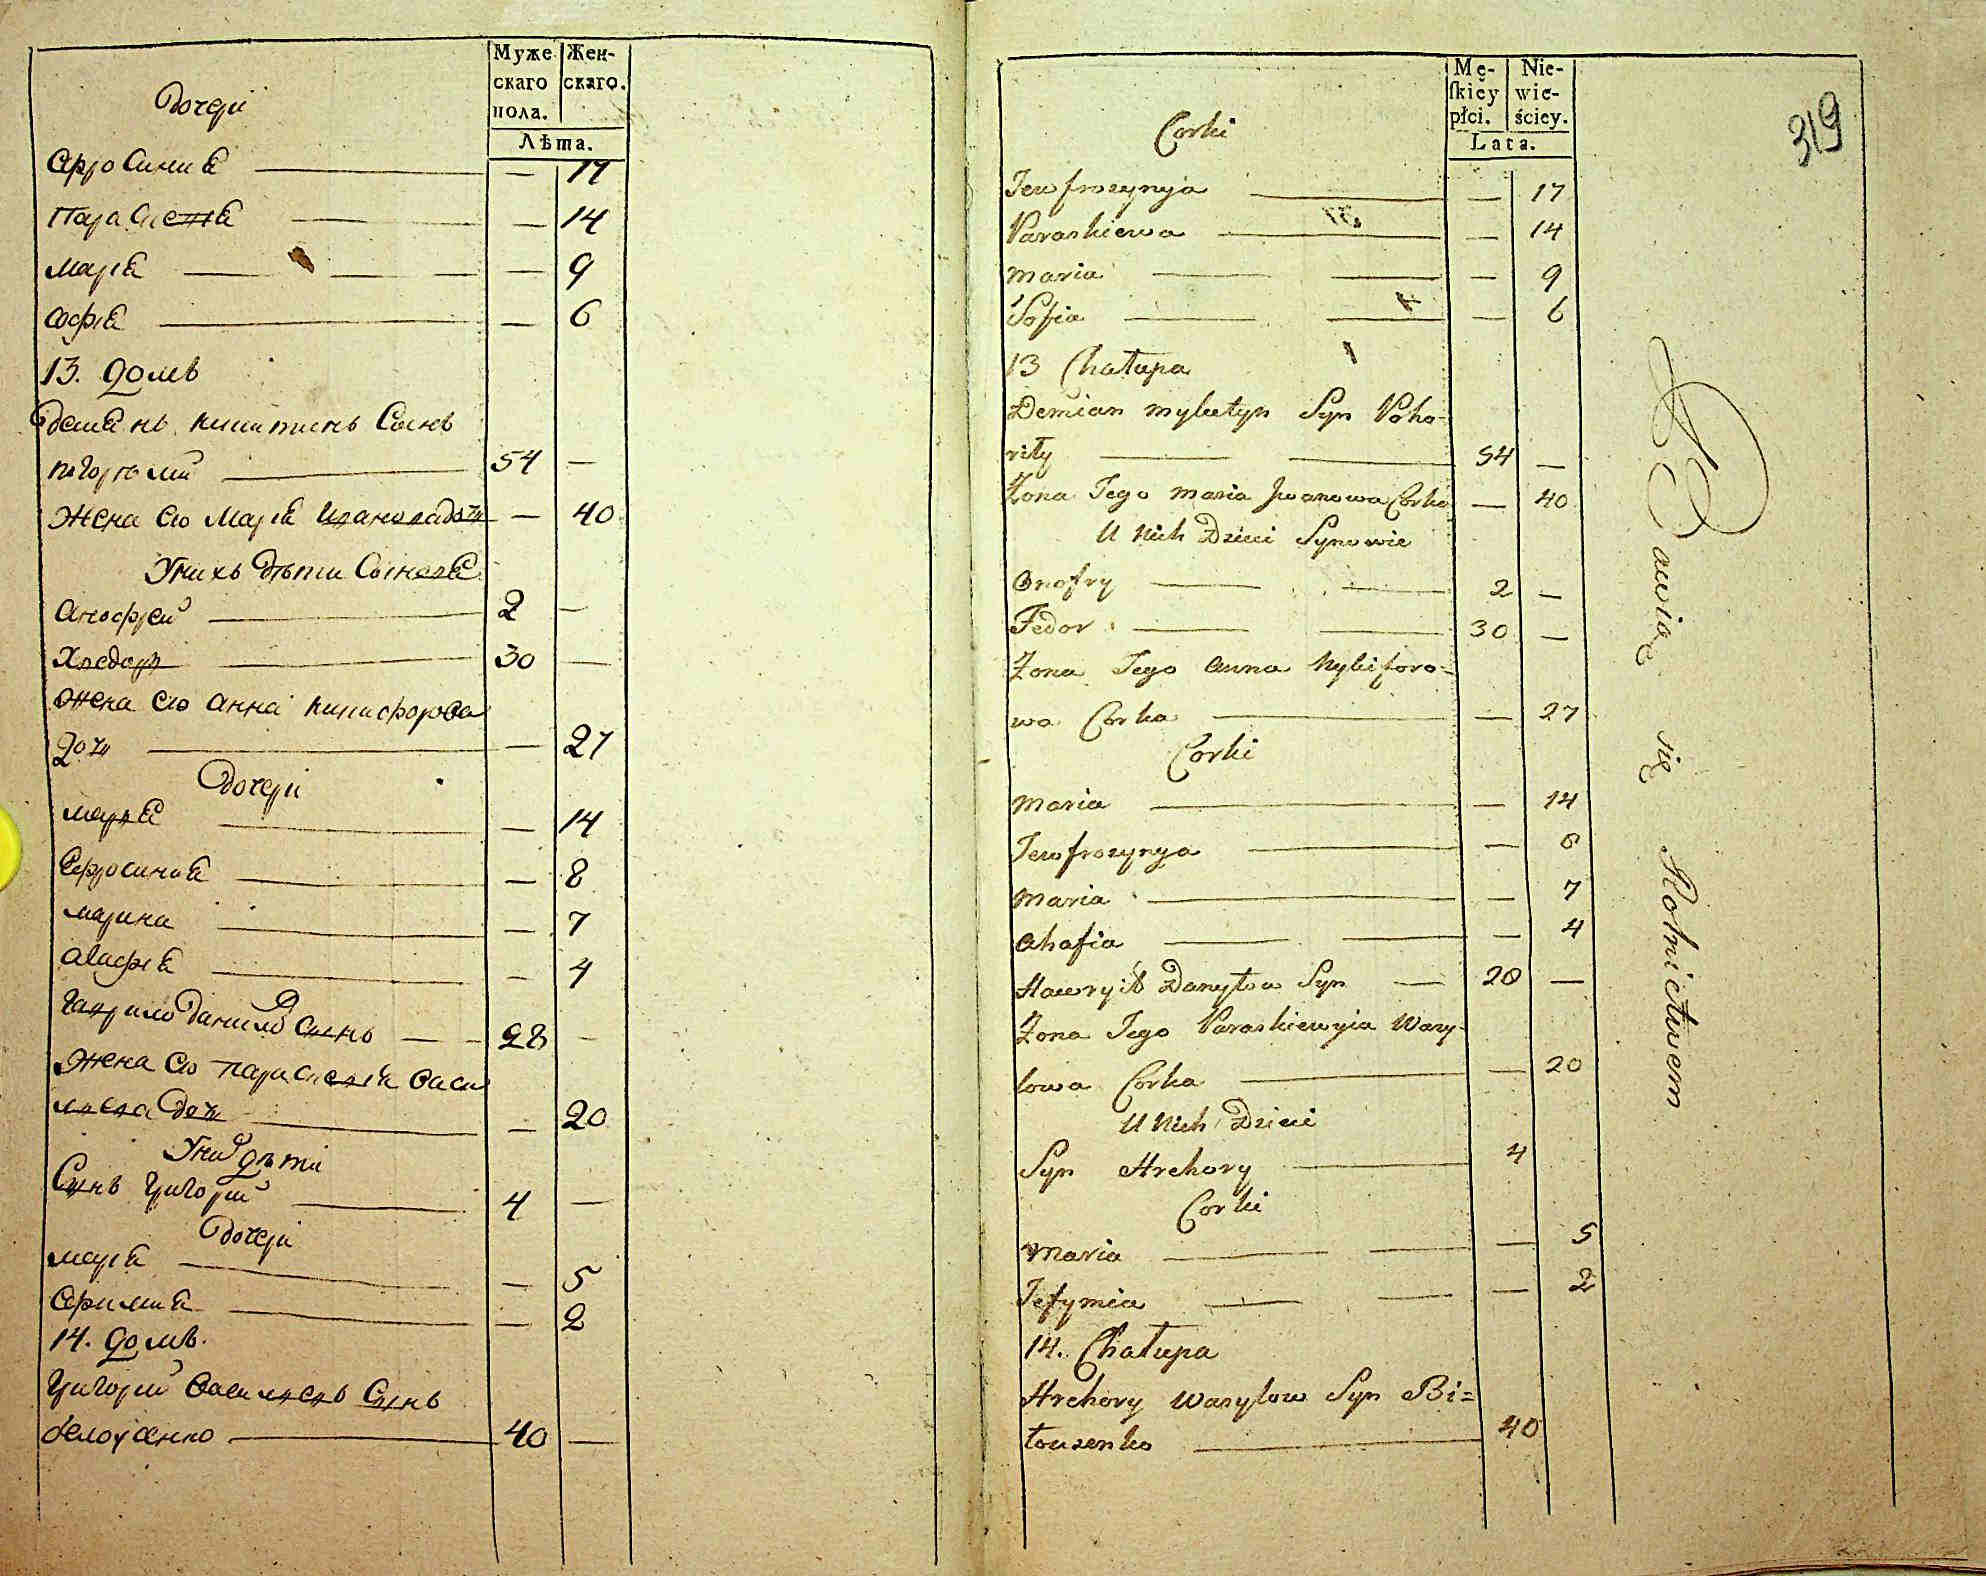 Муже
скаго
пола.
Жен-
скаго.
Лѣта.
Дочери
Ефросиния — 17
Параскевия — 14
Мария — 9
София — 6
13. домъ
Демянъ Никитинъ Сынъ
Погорѣлий 54 —
Жена его Мария Иванова дочь — 40
У нихъ дѣти Сыновя
Анофрей 2 —
Хведоръ 30 —
жена его анна никифорова
дочь — 27
Дочери
мария — 14
Ефросиния — 8
марина — 7
агафия — 4
гаврило данилов сынъ 28 —
жена его параскевия васи
льева дочь — 20
У них дѣти
Сынъ григорий 4 —
дочери
мария — 5
Ефимия — 2
14. домъ.
григорий васильевъ Сынъ
белоусенко 40 —
Mę-
ſkiey
płci.
Nie-
wie-
ściey.
Lata.
319
Corki
Jewfrozynyja — 17
Paraskiewa — 14
Maria — 9
Sofia — 6
13 Chałupa
Demian Mykytyn Syn Poho-
riły 54 —
Żona Jego Maria Jwanowa Corka — 40
U Nich Dzieci Synowie
Onofry 2 —
Fedor 30 —
Żona Jego Anna Nykiforo-
wa Corka — 27
Corki
Maria — 14
Jewfrozynya — 8
Maria — 7
Ahafia — 4
Hawryił Danyłow Syn 28 —
Żona Jego Paraskiewyia Wasy-
lowa Corka — 20
U Nich Dzieci
Syn Hrehory 4
Corki
Maria — 5
Jefymia — 2
14. Chałupa
Hrehory Wasylow Syn Bi=
łousenko 40
Bawią się Rolnictwem